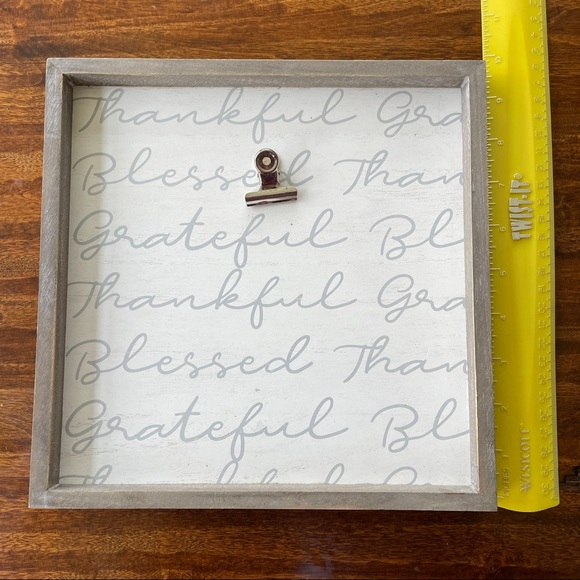 Thankful Gra
Blessed Than
Grateful Bl
Thankful Gra
Blessed Than
Grateful Bl
Thankful Gra
TWIST-IT
Westcott